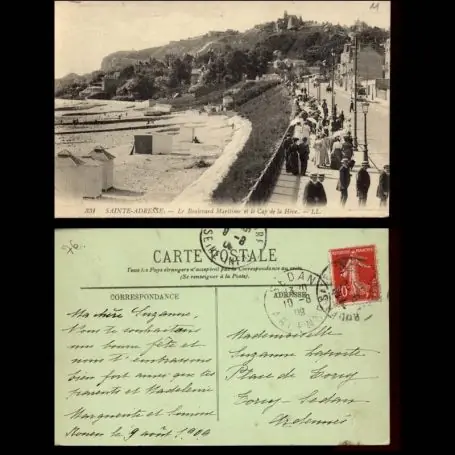 331 SAINTE-ADRESSE. Le Boulevard Maritime et le Cap de la Hève. LL.
CARTE POSTALE
Tous les Pays étrangers n'acceptent pas la Correspondance au recto
(Se renseigner à la Poste).
CORRESPONDANCE
ADRESSE
Ma chère Suzanne,
Nous te souhaitons
une bonne fête et
nous t'embrassons
bien fort ainsi que tes
parents et Madeleine
Marguerite et
Rouen le 9 août 1908
SEDAN
10-8
08
ARDENNES
Mademoiselle
Suzanne
Place de Torcy
Torcy-Sedan
Ardennes